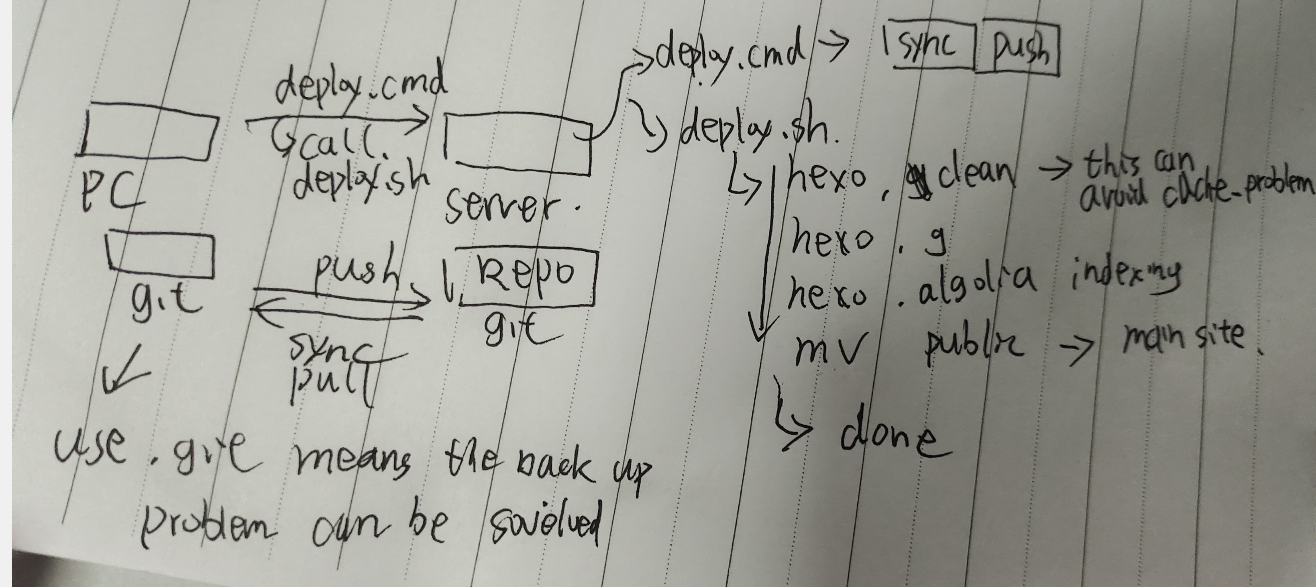 deploy.cmd
call.
deploy.sh
PC
server.
git
push
sync
pull
Repo
git
use .git means the back up
problem can be
deploy.cmd → sync push
deploy.sh.
hexo . clean → this can
avoid cache-problem
hexo . g
hexo . algolia indexing
mv public → main site.
done